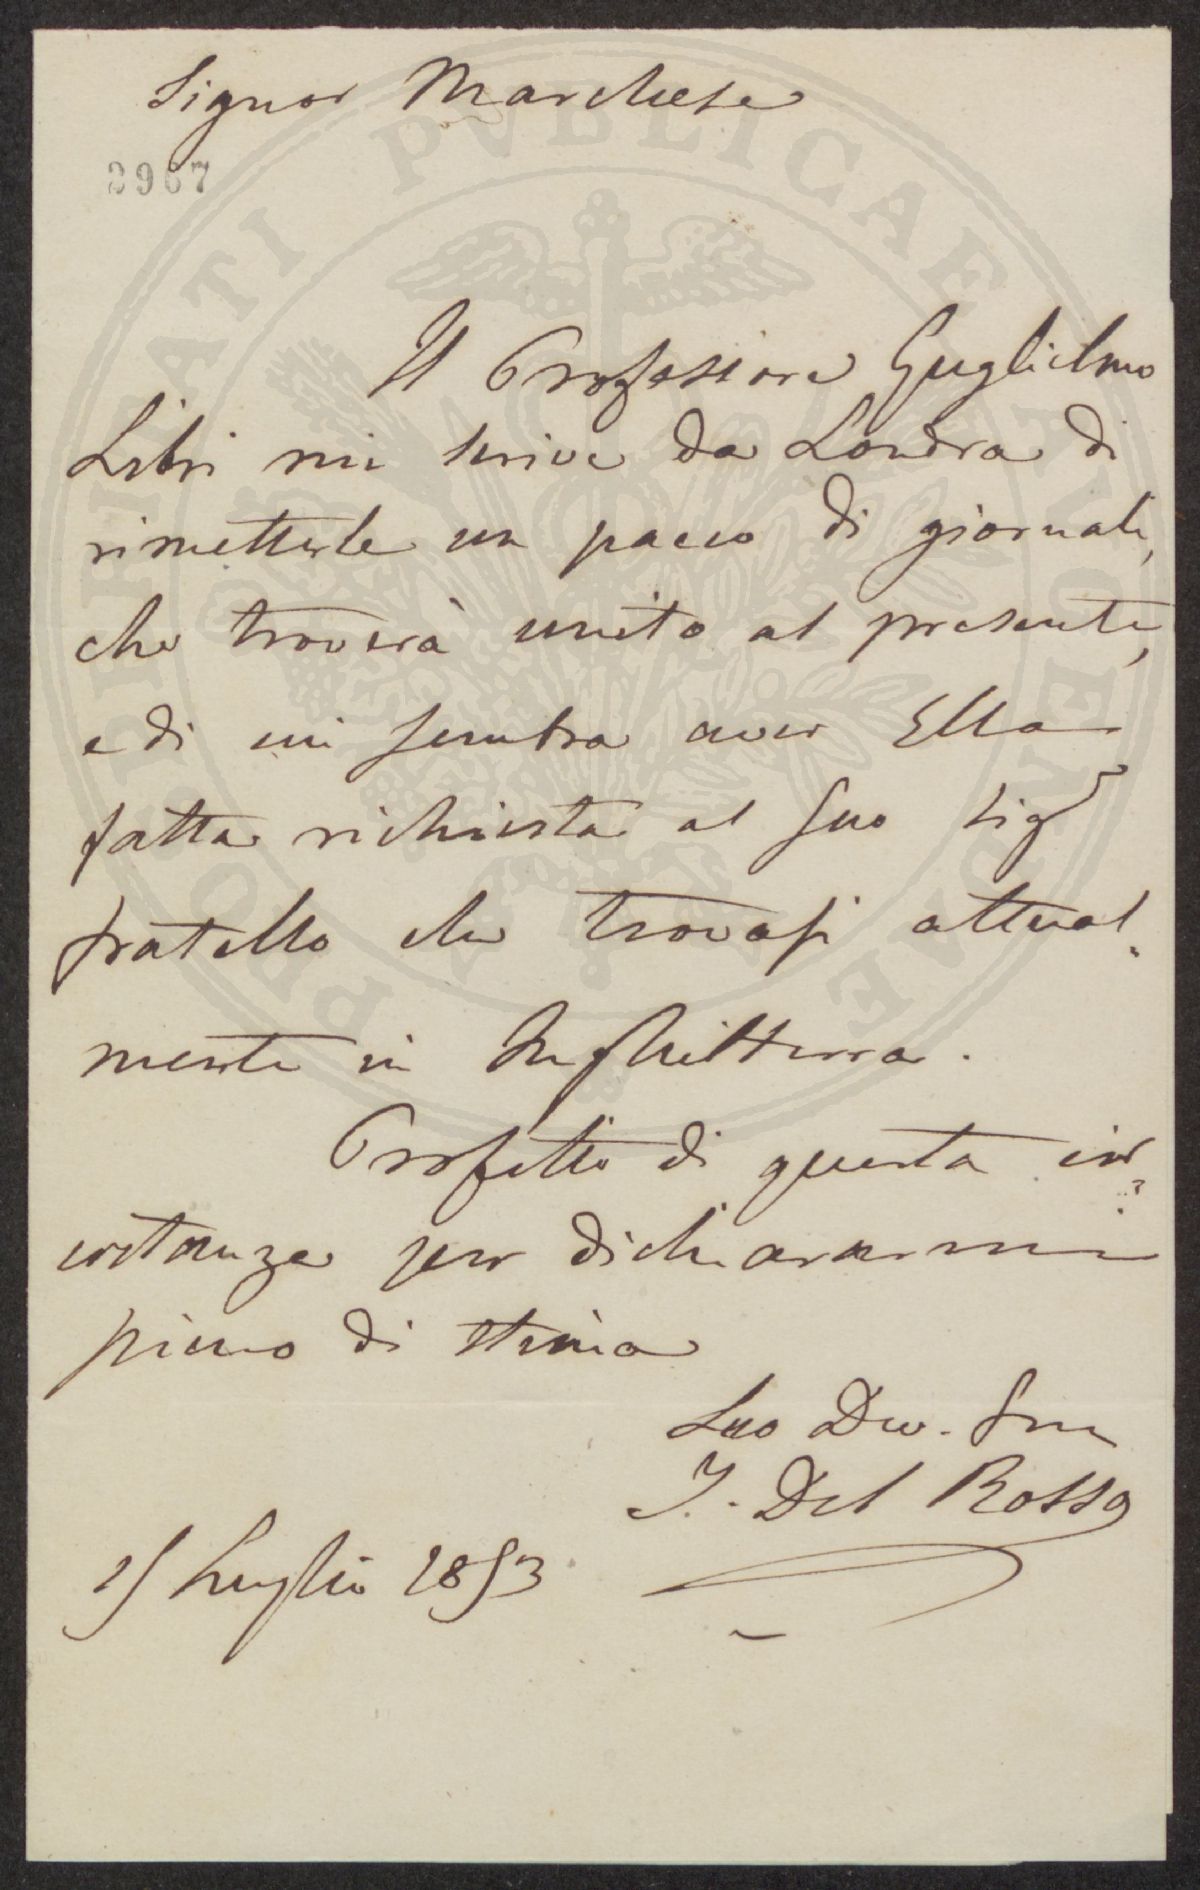 Signor Marchese
2967
Il Professore Guglielmo
Libri mi scrive da Londra di
rimetterle un pacco di giornali,
che troverà unito al presente,
e di cui sembra aver Ella
fatta richiesta al suo Sigr
fratello che trovasi attual-
mente in Inghilterra.
Profitto di questa cir-
costanza per dichiararmi
pieno di stima
Suo Dev. Serv
J. Del Rosso
15 Luglio 1853
PROSPERITATI PVBLICAE AVGENDAE